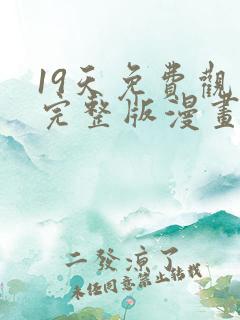 19天免費觀
完整版漫畫
二發涼了
未任同意禁止轉載